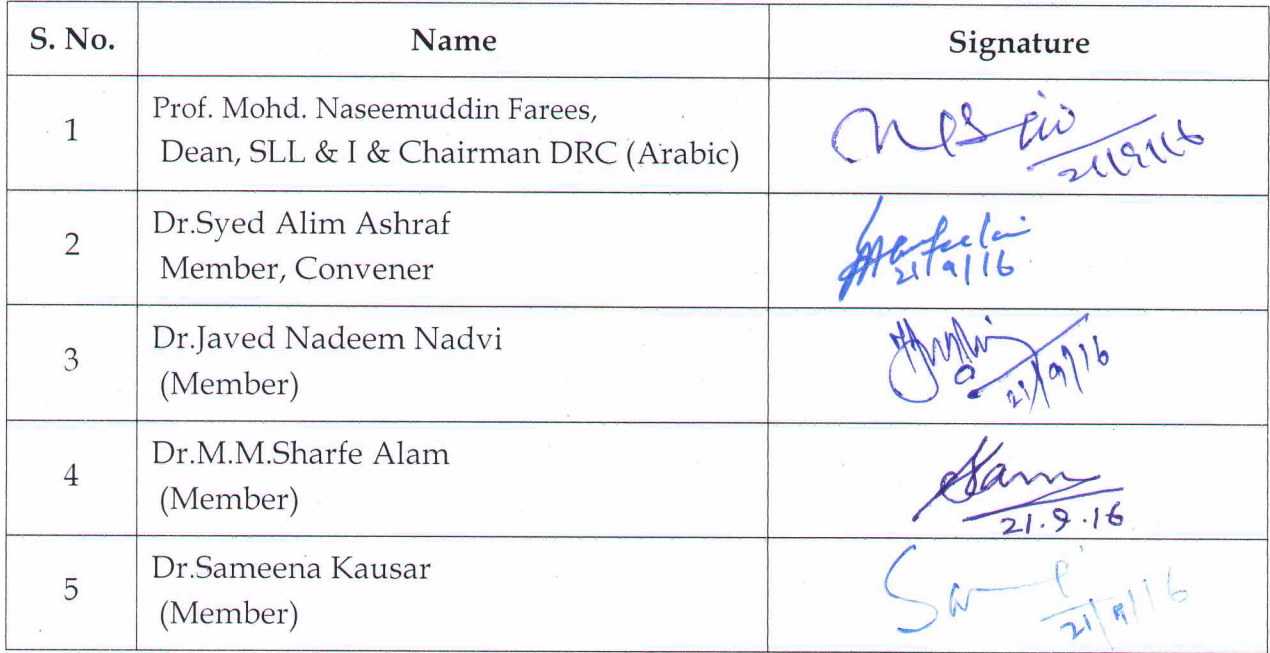 S. No. Name Signature
1 Prof. Mohd. Naseemuddin Farees,
Dean, SLL & I & Chairman DRC (Arabic)
21/9/16
2 Dr.Syed Alim Ashraf
Member, Convener
21/9/16
3 Dr.Javed Nadeem Nadvi
(Member)
21/9/16
4 Dr.M.M.Sharfe Alam
(Member)
21.9.16
5 Dr.Sameena Kausar
(Member)
21/9/16